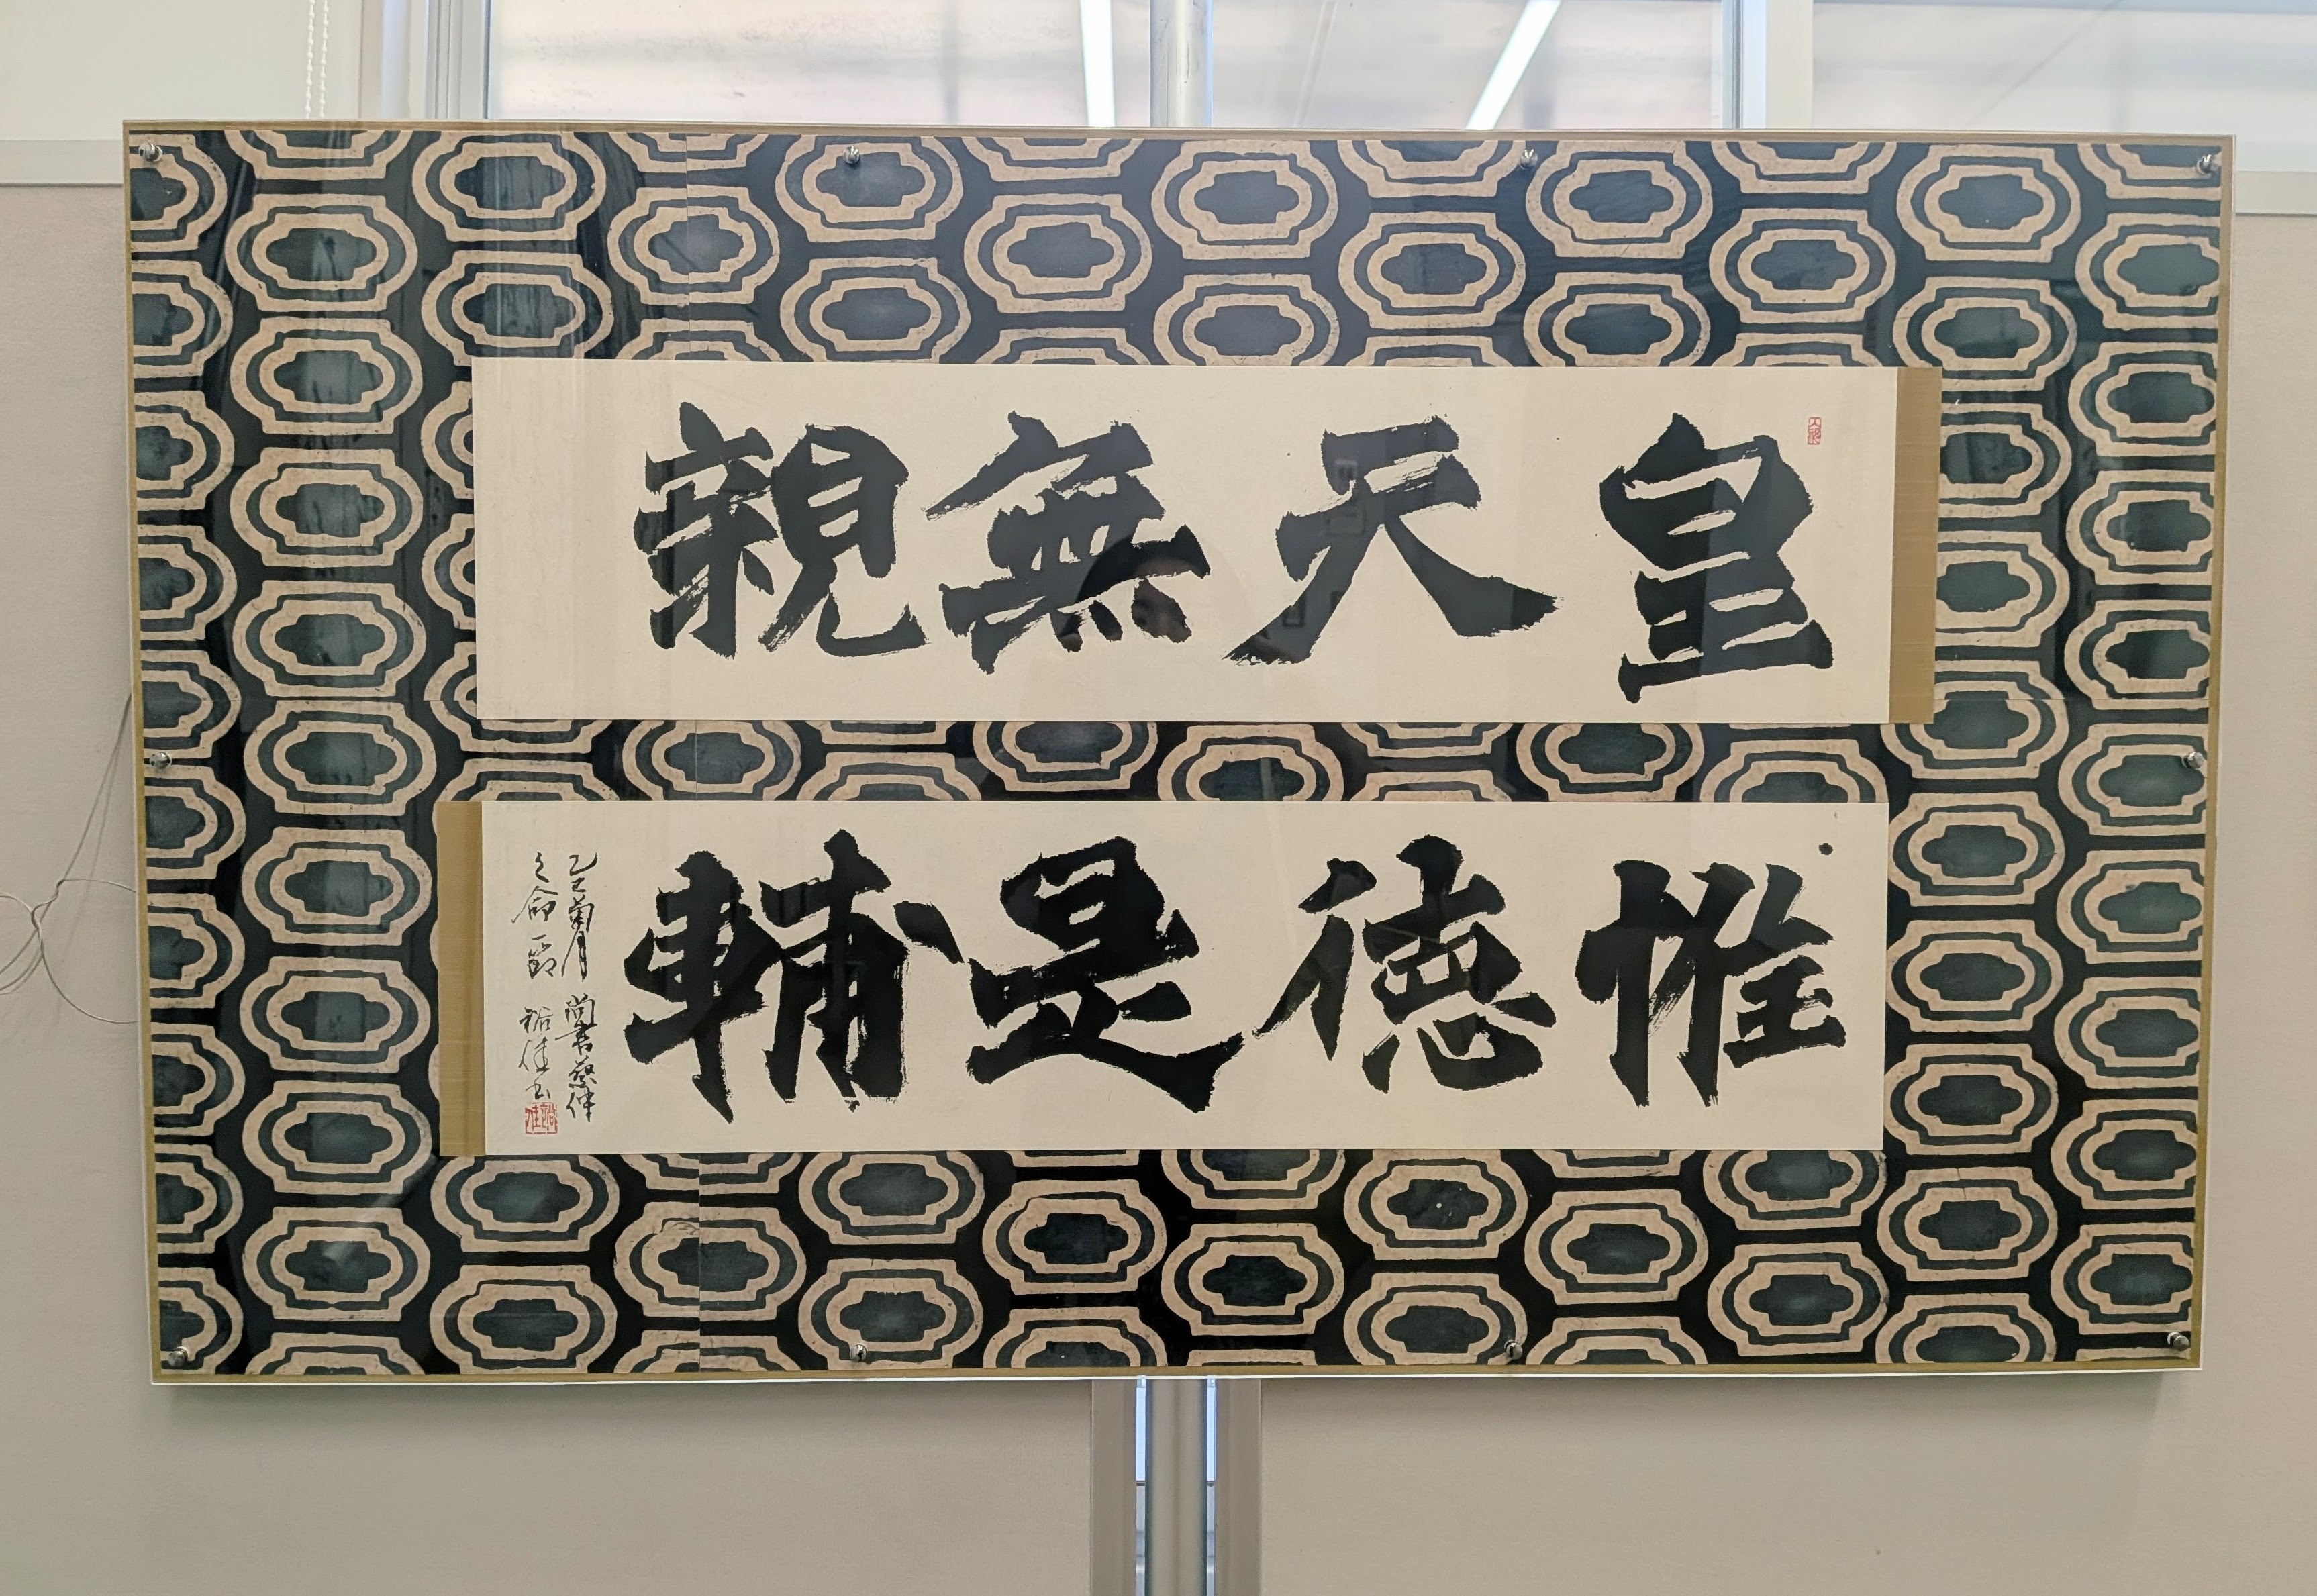 皇天無親
惟德是輔
乙巳菊月尚書蔡仲
之命一節 裕佳書